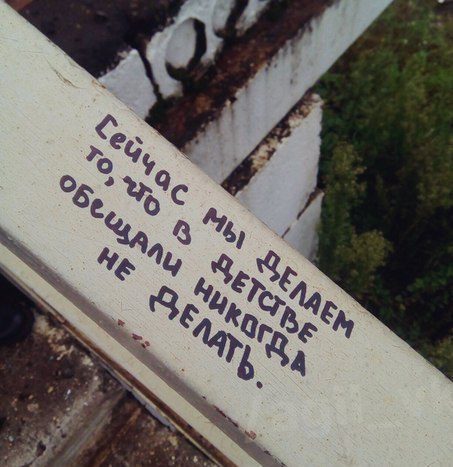 Сейчас мы делаем
то, что в детстве
обещали никогда
не делать.